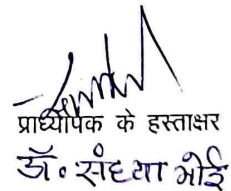 प्राध्यापक के हस्ताक्षर
डॉ. संध्या भोई